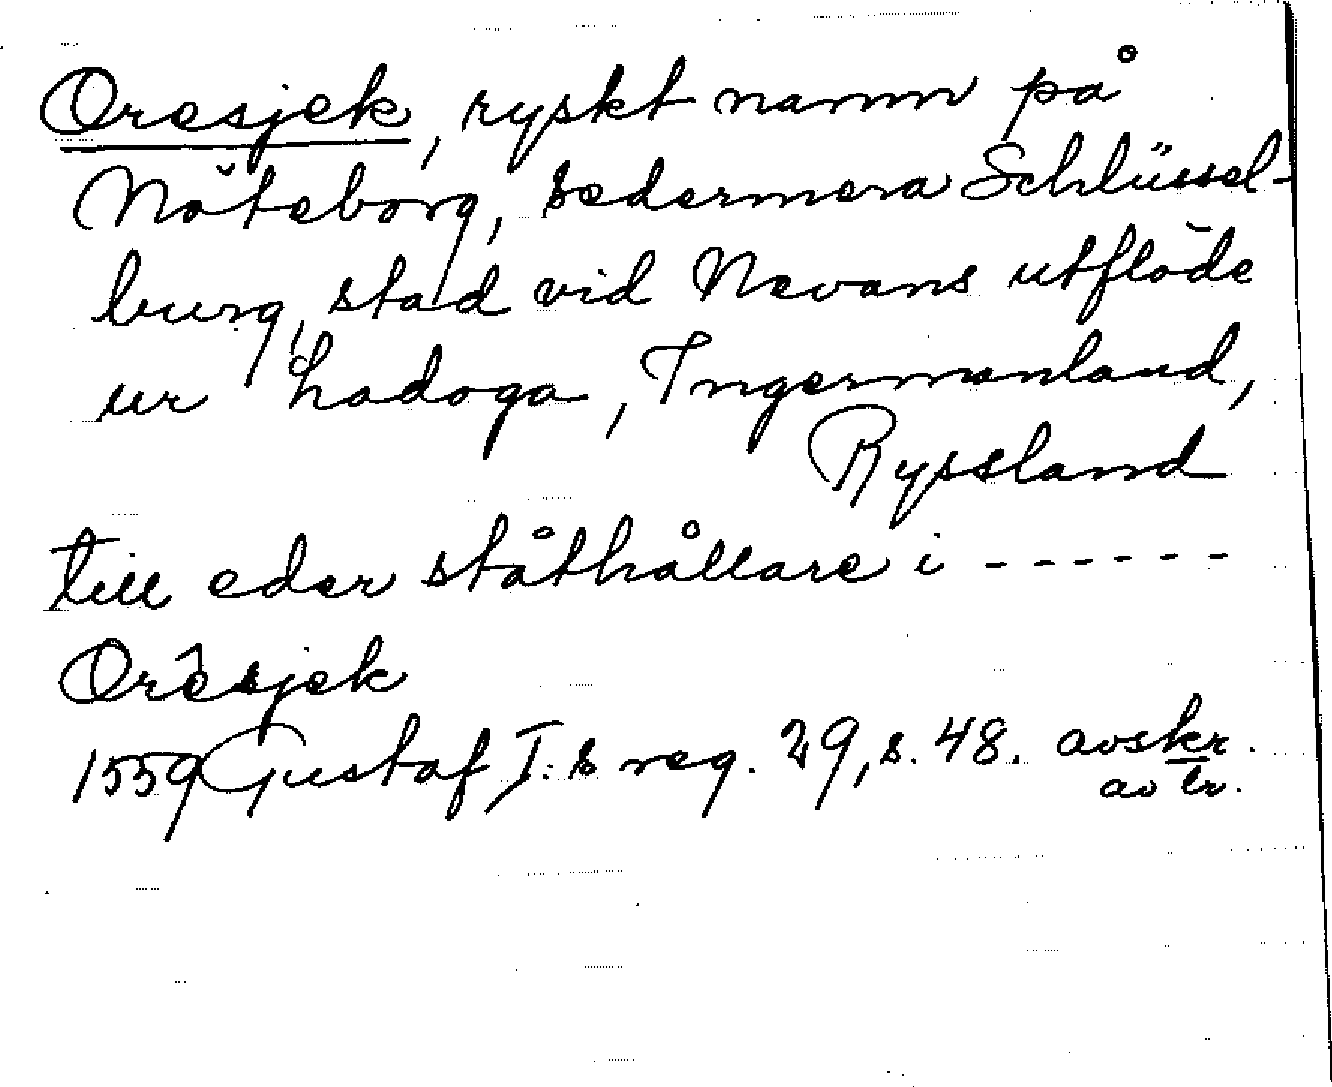 Oresjek, ryskt namn på
Nöteborg, sedermera Schlüssel-
burg, stad vid Nevans utflöde
ur Ladoga, Ingermanland,
Ryssland
till eder ståthållare i - - - - - -
Orêsjek
1559 Gustaf I:s reg. 29, s. 48. avskr.
av br.